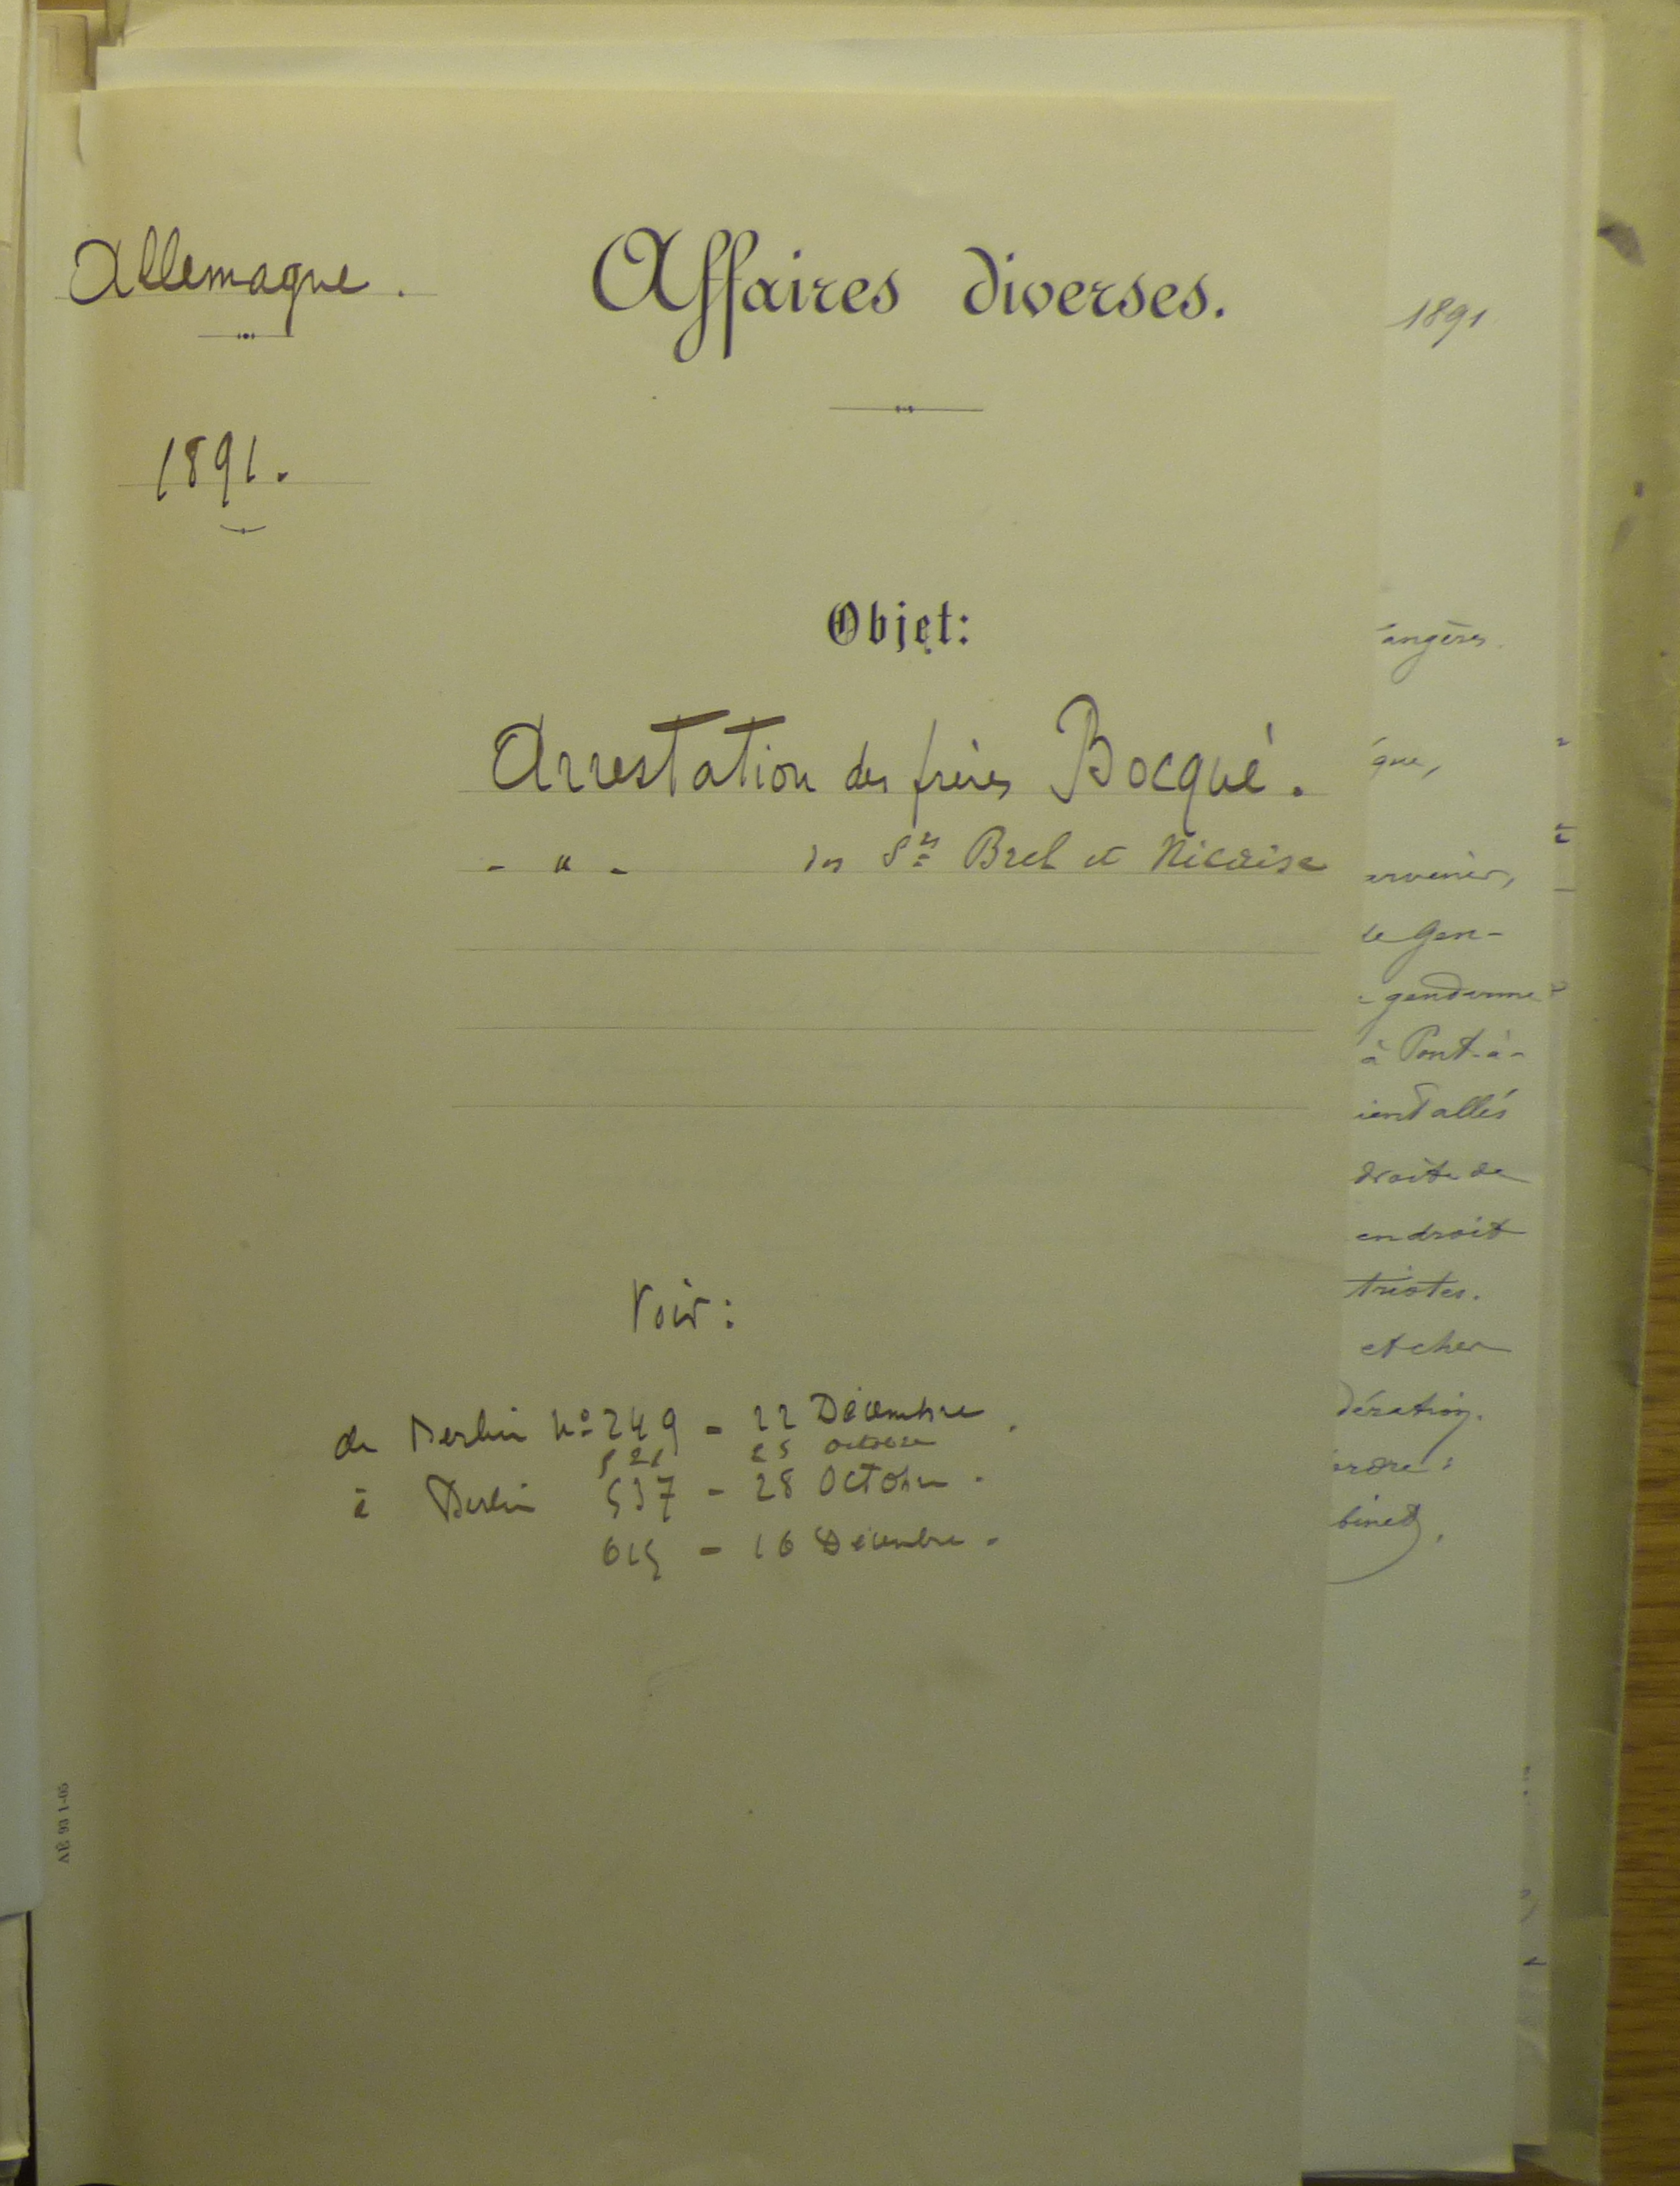 Allemagne.
Affaires diverses.
1891.
Objet:
Arrestation des frères Bocqué.
- " - des Srs Brel et Nicaise
Voir:
de Berlin No 249 - 22 Décembre.
521 25 octobre
à Berlin 537 - 28 Octobre.
615 - 16 Décembre.
AÉ 93 1-05
1891
angères.
que,
le Gen-
gendarme
à Pont-à-
ient allés
droite de
endroit
tristes.
et cher
dération.
ordre:
binet,